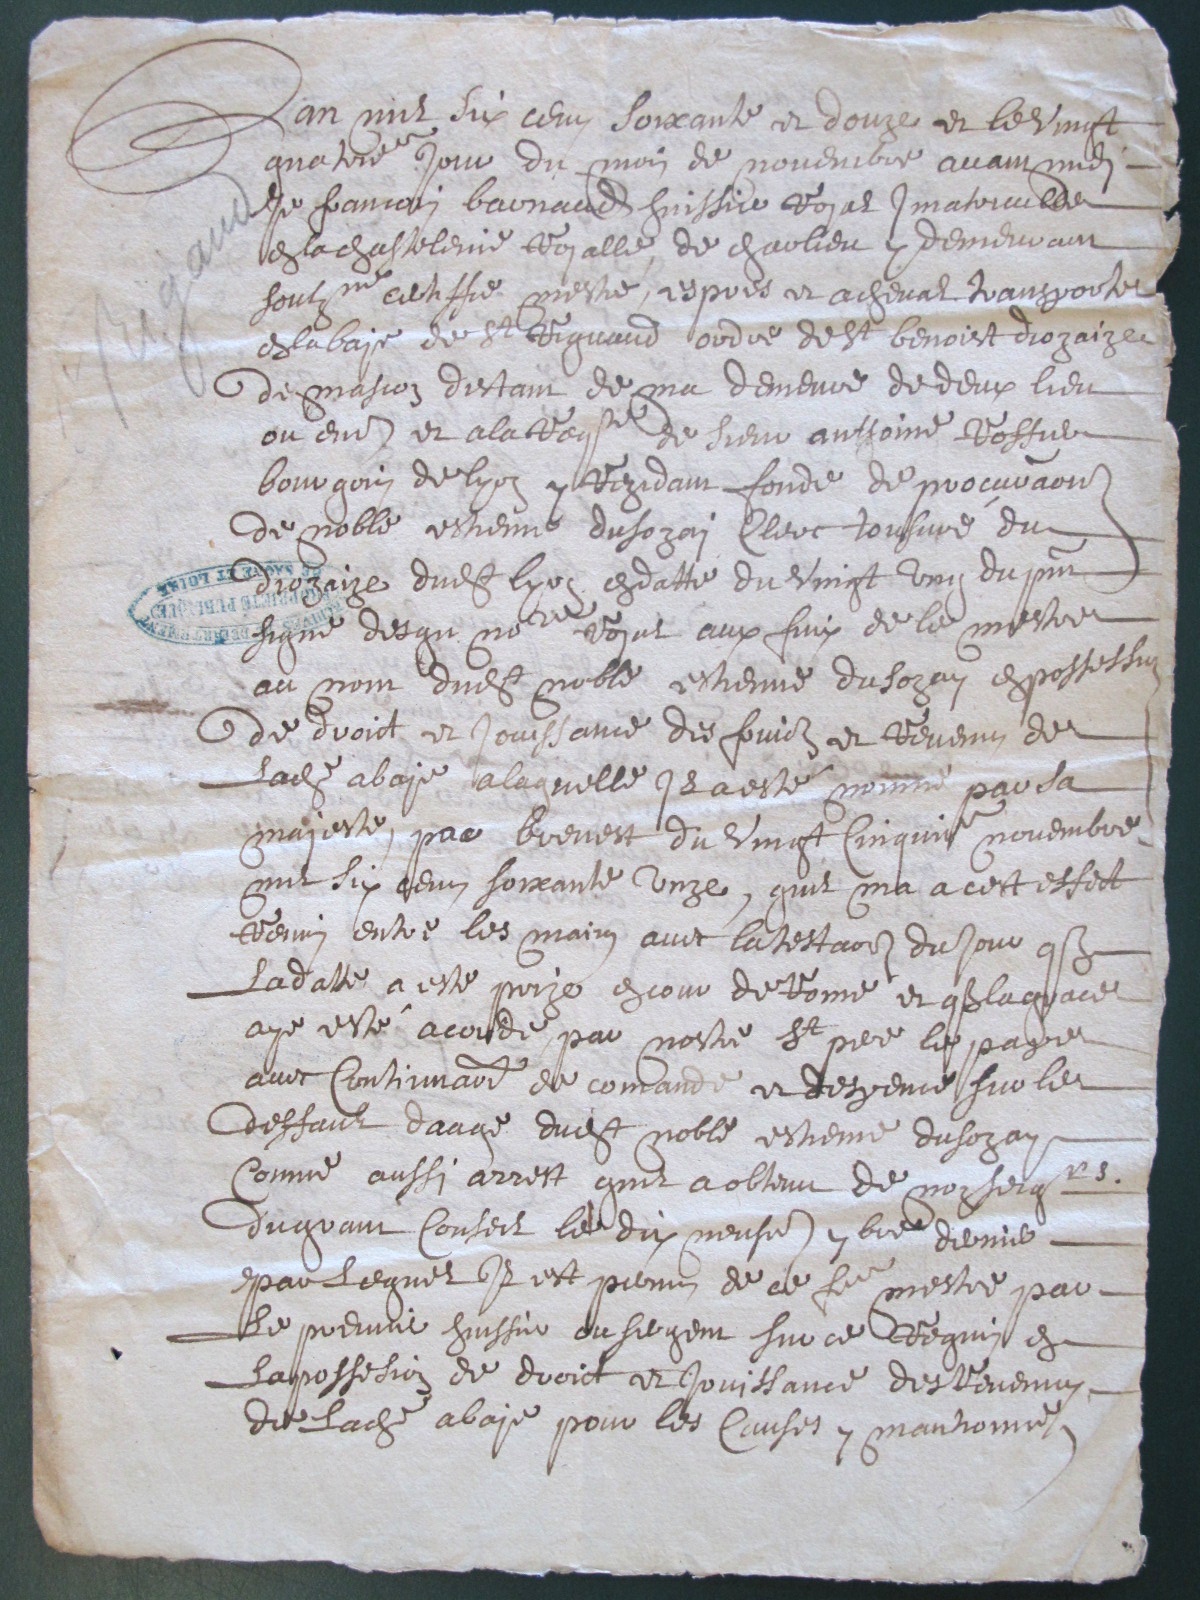 Lan mil six cens soixante et douze et le vingt
quatrie^me Jour du mois de novembre avant midi
Je francois barnaud huissier royal Jmatriculle
en la chastelenie royalle de charlieu y demeurant
soubz^ne certiffie mestre, espres et a cheval transporter
en labaje de S^t Rignaud ordre de S^t benoist diozaize
de mascon distant de ma demeure de deux lieu
ou env et a la req^te de sieur anthoine
bourgois de lyon y rezidant fonde de procuraon
de noble estienne dusozai Clerc tonsuré du
diozaize dud^t lyon en datte du vingt ung du p^nt
signe no^re royal aux fins de le mestre
au nom dud^t noble estienne dusozay en possession
de droict et Jouissance des fruictz et revenu de
Lad^e abaje a laquelle Jl a esté nommé par sa
majeste, par brevest du vingt Cinquie^me novembre
mil six cens soixante unze, quil ma a cest effect
remis entre les mains avec latestaon du Jour que
La datte a este prize en cour de Rome et que la grace
aye esté acordé par nostre S^t pere le pape
avec de comande et despence sur le
deffault daage dud^t noble estienne dusozay
Comme aussi arrest quil a obtenu de noz seig^rs.
du grant Conseil le dix neufie 7^bre dernier
par Lequel Jl est permis de ce fe^re mestre par
Le premier huissier ou sergent sur ce requis en
La possesion de droict et Jouissance des revenus
de Lad^e abaje pour les Causes y mantionne
Rigaud
ARCHIVES DÉPARTEMENTALES
PROPRIÉTÉ PUBLIQUE
DE SAONE ET LOIRE